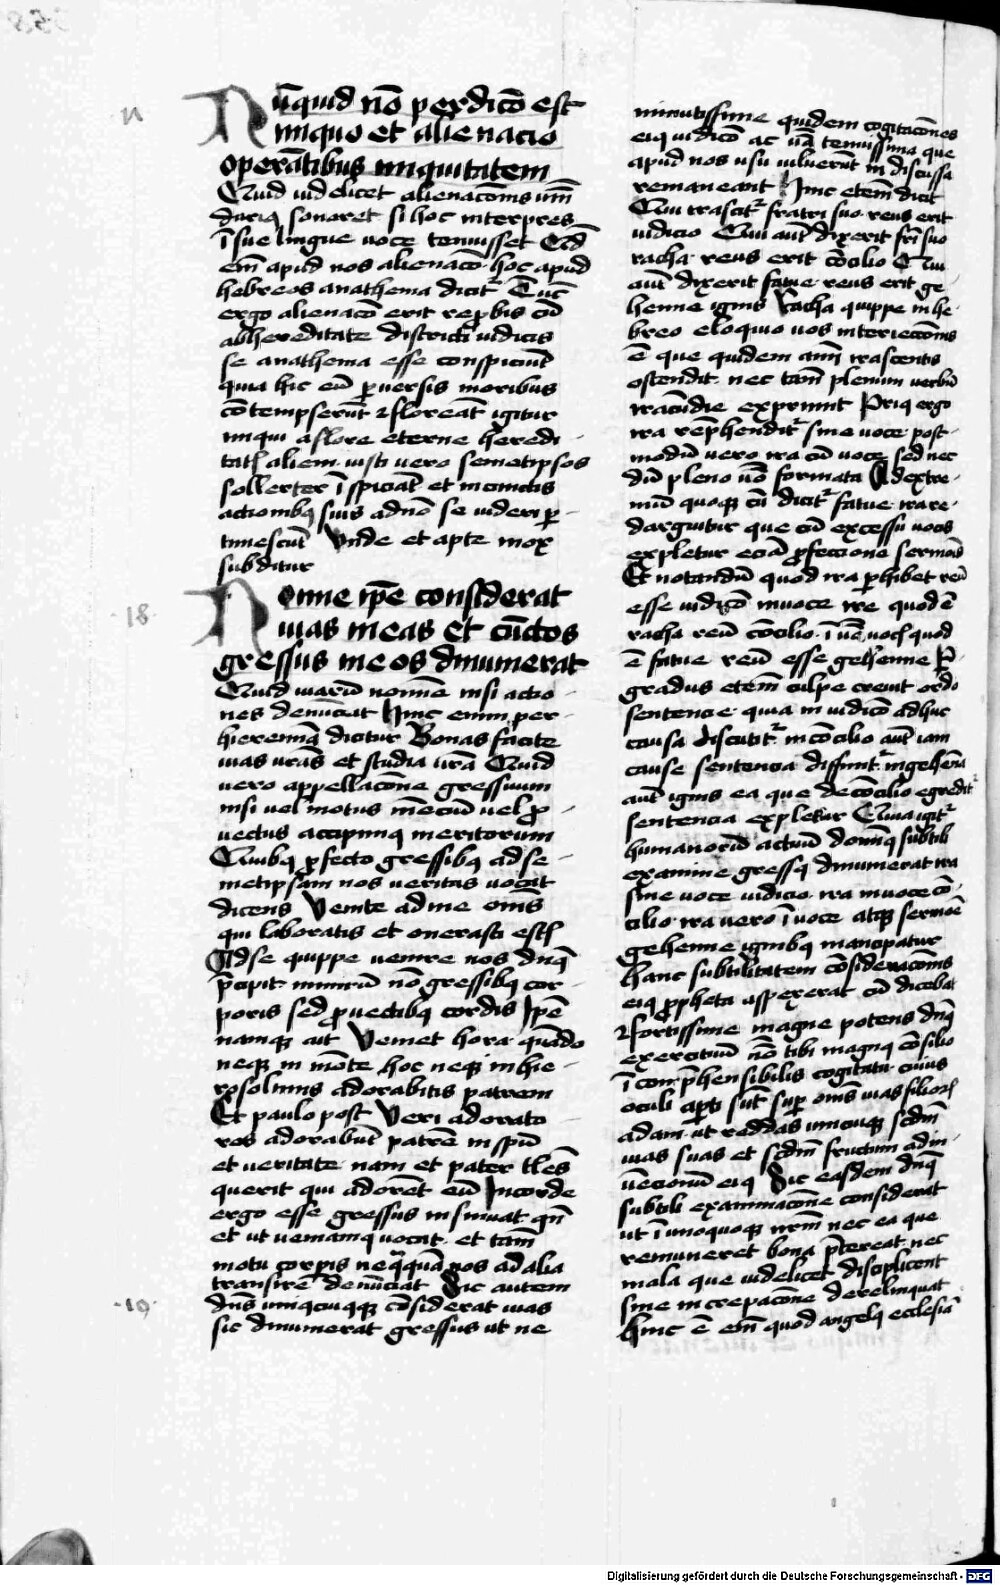 Nūquid nō perdicō est
iniquo et alienacio
operātibus iniquitatem
Quid videlicet alienacōnis nūn
duriꝰ sonaret si hoc interpres
ī sue lingue voce tenuisset Qd̄
em̄ apud nos alienacō · hoc apud
hebreos anathema dicit᷑ Tūc
ergo alienacō erit reꝓbis cū
ab hereditate districti iudicis
se anathema esse conspiciūt
quia hic eū ꝑversis moribus
cōtempserūt ⁊ floreāt igitur
iniqui a flore eterne heredi-
tatꝭ alieni · iusti vero semetipsos
sollerter īspiciāt et in cunctis
actionibꝰ suis ad nō se videri ꝑ-
timescūt Unde et apte mox
subditur
18
Nonne ip̄e considerat
vias meas et cūctos
gressus meos dinumerat
Quid viarū nomīe nisi actio-
nes denūciat Hinc enim per
hieremiā dicitur Bonas facite
vias vr̄as et studia vr̄a Quid
vero appellacōne gressuum
nisi vel motus mēciū vel ꝓ-
vectus accipimꝰ meritorum
Quibꝰ ꝓfecto gressibꝰ ad se-
metipsam nos veritas vocat
dicens Venite ad me om̄s
qui laboratis et onerati estꝭ
Ad se quippe venire nos dn̄s
p̄cipit nimirū nō gressibꝰ cor-
poris sed ꝓvectibꝰ cordis Ip̄e
namqꝫ ait Veniet hora quādo
neqꝫ in mōte hoc neqꝫ in hie-
rosolimis adorabitis patrem
Et paulo post Veri adorato-
res adorabūt patrē in sp̄u
et veritate · nam et pater tl̄es
querit qui adorēt eū In corde
ergo esse gressus insinuat qn̄
et ut veniamꝰ vocat · et tam̄
motu corꝑis neq̄quā nos ad alia
transire denūciat Sic autem
19
dn̄s uniꝰcuiusqꝫ cōsiderat vias
sic dinumerat gressus ut ne
minutissime quidem cogitacōnes
eiꝰ iudicō ac v̄ba tenuissima que
apud nos usu viluerūt indiscussa
remaneant Hinc etem̄ dicit
Qui irascit᷑ fratri suo reus erit
iudicio Qui aut̄ dixerit fr̄i suo
racha · reus erit cōcilio Qui
aut̄ dixerit fatue · reus erit ge-
henne ignis Racha quippe in he-
breo eloquio vox interiectōnis
ē que quidem anim̄ irascentis
ostendit · nec tam̄ plenum verbū
iracūdie exprimit Priꝰ ergo
ira rep̄hendit᷑ sine voce · post-
modū vero ira cū voce · sed nec-
dū pleno v̄bo formata Ad extre-
mū quoqꝫ cū dicit᷑ fatue · ira re-
darguitur que cū excessu vocis
expletur eciā ꝓfeccione sermōis
Et notandū quod ira ꝑhibet reū
esse iudicō · in voce ire quod ē
racha reū cōcilio · ī v̄bo vocꝭ quod
ē fatue reū esse gehenne Per
gradus etem̄ culpe crevit ordo
sentencie · quia in iudicō adhuc
causa discutit᷑ in cōcilio aut̄ iam
cause sentencia diffinit᷑ in gehēna
aut̄ ignis ea que de cōcilio egredit᷑
sentencia expletur Quia igit᷑
humanorū actuū dominꝰ subtili
examine gressꝰ dinumerat ira
sine voce iudicio · ira in voce cō-
cilio · ira vero ī voce atqꝫ sermōe
gehenne ignibꝰ mancipatur
Hanc subtilitatem cōsideracōnis
eiꝰ ꝓpheta aspexerat cū diceba
⁊ fortissime magne potens dn̄s
exercituū nō tibi magnꝰ cōsilio
īcomp̄hensibilis cogitatu · cuius
oculi aꝑti sūt suꝑ om̄s vias filiorꝫ
adam · ut reddas unicuiqꝫ scd̄m
vias suas et scd̄m fructum adin-
vēcionū eiꝰ Sic easdem dn̄s
subtili examinacōne considerat
ut ī unoquoqꝫ nr̄m nec ea que
remuneret bona p̄tereat · nec
mala que videlicet displicent
sine increpacōne derelinquat
Hinc ē em̄ quod angelꝰ ecclesiā
Digitalisierung gefördert durch die Deutsche Forschungsgemeinschaft - DFG